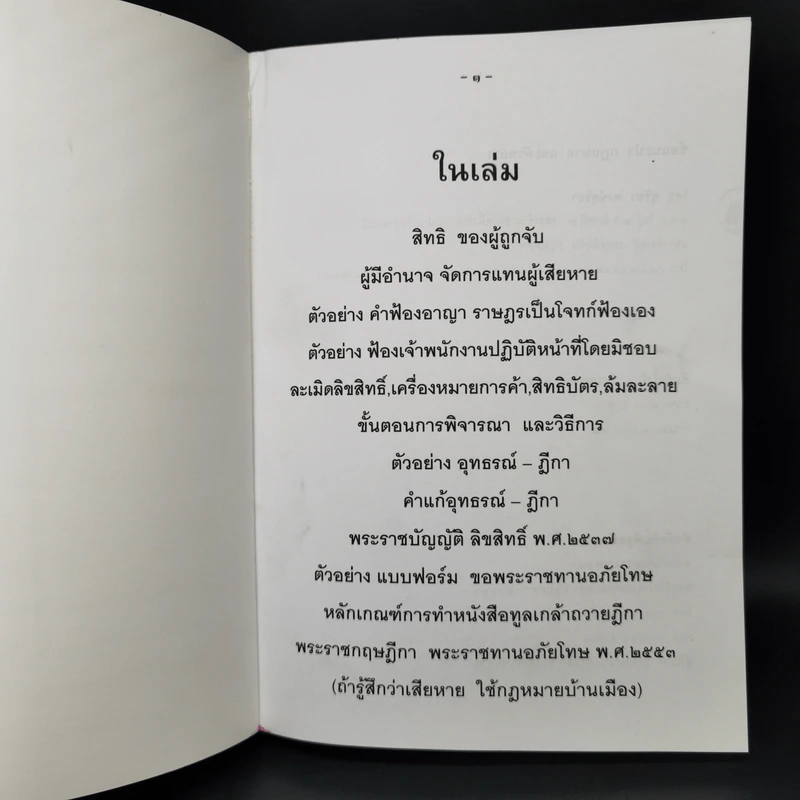 - ๑ -
ในเล่ม
สิทธิ ของผู้ถูกจับ
ผู้มีอำนาจ จัดการแทนผู้เสียหาย
ตัวอย่าง คำฟ้องอาญา ราษฎรเป็นโจทก์ฟ้องเอง
ตัวอย่าง ฟ้องเจ้าพนักงานปฏิบัติหน้าที่โดยมิชอบ
ละเมิดลิขสิทธิ์,เครื่องหมายการค้า,สิทธิบัตร,ล้มละลาย
ขั้นตอนการพิจารณา และวิธีการ
ตัวอย่าง อุทธรณ์ – ฎีกา
คำแก้อุทธรณ์ – ฎีกา
พระราชบัญญัติ ลิขสิทธิ์ พ.ศ.๒๕๓๗
ตัวอย่าง แบบฟอร์ม ขอพระราชทานอภัยโทษ
หลักเกณฑ์การทำหนังสือทูลเกล้าถวายฎีกา
พระราชกฤษฎีกา พระราชทานอภัยโทษ พ.ศ.๒๕๕๓
(ถ้ารู้สึกว่าเสียหาย ใช้กฎหมายบ้านเมือง)